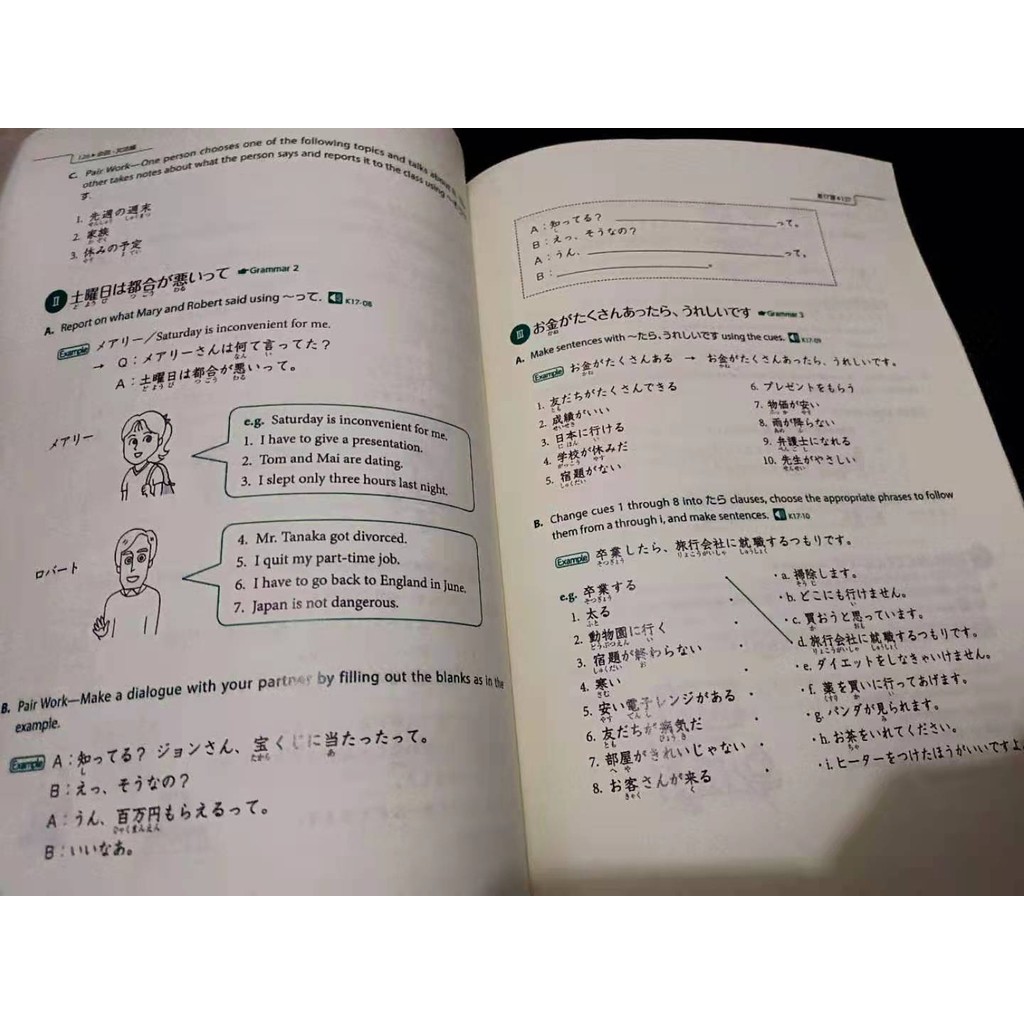 126▶会話・文法編
C. Pair Work—One person chooses one of the following topics and talks about it. The
other takes notes about what the person says and reports it to the class using ～そうで
す.
1. 先週の週末
せんしゅう しゅうまつ
2. 家族
かぞく
3. 休みの予定
やす よてい
II 土曜日は都合が悪いって ☛Grammar 2
どようび つごう わる
A. Report on what Mary and Robert said using ～って. K17-08
Example メアリー／Saturday is inconvenient for me.
→ Q：メアリーさんは何て言ってた？
なん い
A：土曜日は都合が悪いって。
どようび つごう わる
メアリー
e.g. Saturday is inconvenient for me.
1. I have to give a presentation.
2. Tom and Mai are dating.
3. I slept only three hours last night.
ロバート
4. Mr. Tanaka got divorced.
5. I quit my part-time job.
6. I have to go back to England in June.
7. Japan is not dangerous.
B. Pair Work—Make a dialogue with your partner by filling out the blanks as in the
example.
Example A：知ってる？ ジョンさん、宝くじに当たったって。
し たから あ
B：えっ、そうなの？
A：うん、百万円もらえるって。
ひゃくまんえん
B：いいなあ。
第17課◀127
A：知ってる？ ____って。
し
B：えっ、そうなの？
A：うん、____って。
B：____。
III お金がたくさんあったら、うれしいです ☛Grammar 3
かね
A. Make sentences with ～たら、うれしいです using the cues. K17-09
Example お金がたくさんある → お金がたくさんあったら、うれしいです。
かね かね
1. 友だちがたくさんできる
とも
2. 成績がいい
せいせき
3. 日本に行ける
にほん い
4. 学校が休みだ
がっこう やす
5. 宿題がない
しゅくだい
6. プレゼントをもらう
7. 物価が安い
ぶっか やす
8. 雨が降らない
あめ ふ
9. 弁護士になれる
べんごし
10. 先生がやさしい
せんせい
B. Change cues 1 through 8 into たら clauses, choose the appropriate phrases to follow
them from a through i, and make sentences. K17-10
Example 卒業したら、旅行会社に就職するつもりです。
そつぎょう りょこうがいしゃ しゅうしょく
e.g. 卒業する
そつぎょう
1. 太る
ふと
2. 動物園に行く
どうぶつえん い
3. 宿題が終わらない
しゅくだい お
4. 寒い
さむ
5. 安い電子レンジがある
やす でんし
6. 友だちが病気だ
とも びょうき
7. 部屋がきれいじゃない
へや
8. お客さんが来る
きゃく く
・a. 掃除します。
そうじ
・b. どこにも行けません。
い
・c. 買おうと思っています。
か おも
d. 旅行会社に就職するつもりです。
りょこうがいしゃ しゅうしょく
・e. ダイエットをしなきゃいけません。
・f. 薬を買いに行ってあげます。
くすり か い
・g. パンダが見られます。
み
・h. お茶をいれてください。
ちゃ
・i. ヒーターをつけたほうがいいですよ